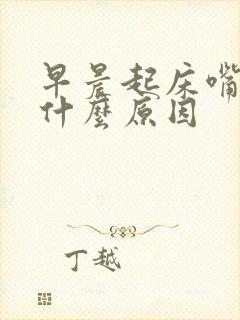 早晨起床嘴
什麼原因
丁越